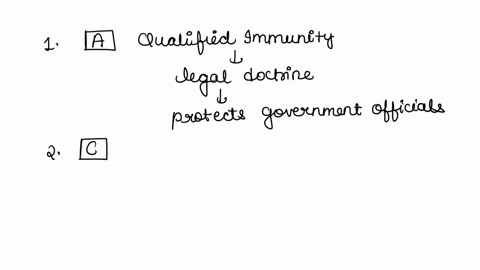 1. A Qualified Immunity
↓
legal doctrine
↓
protects government officials
2. C